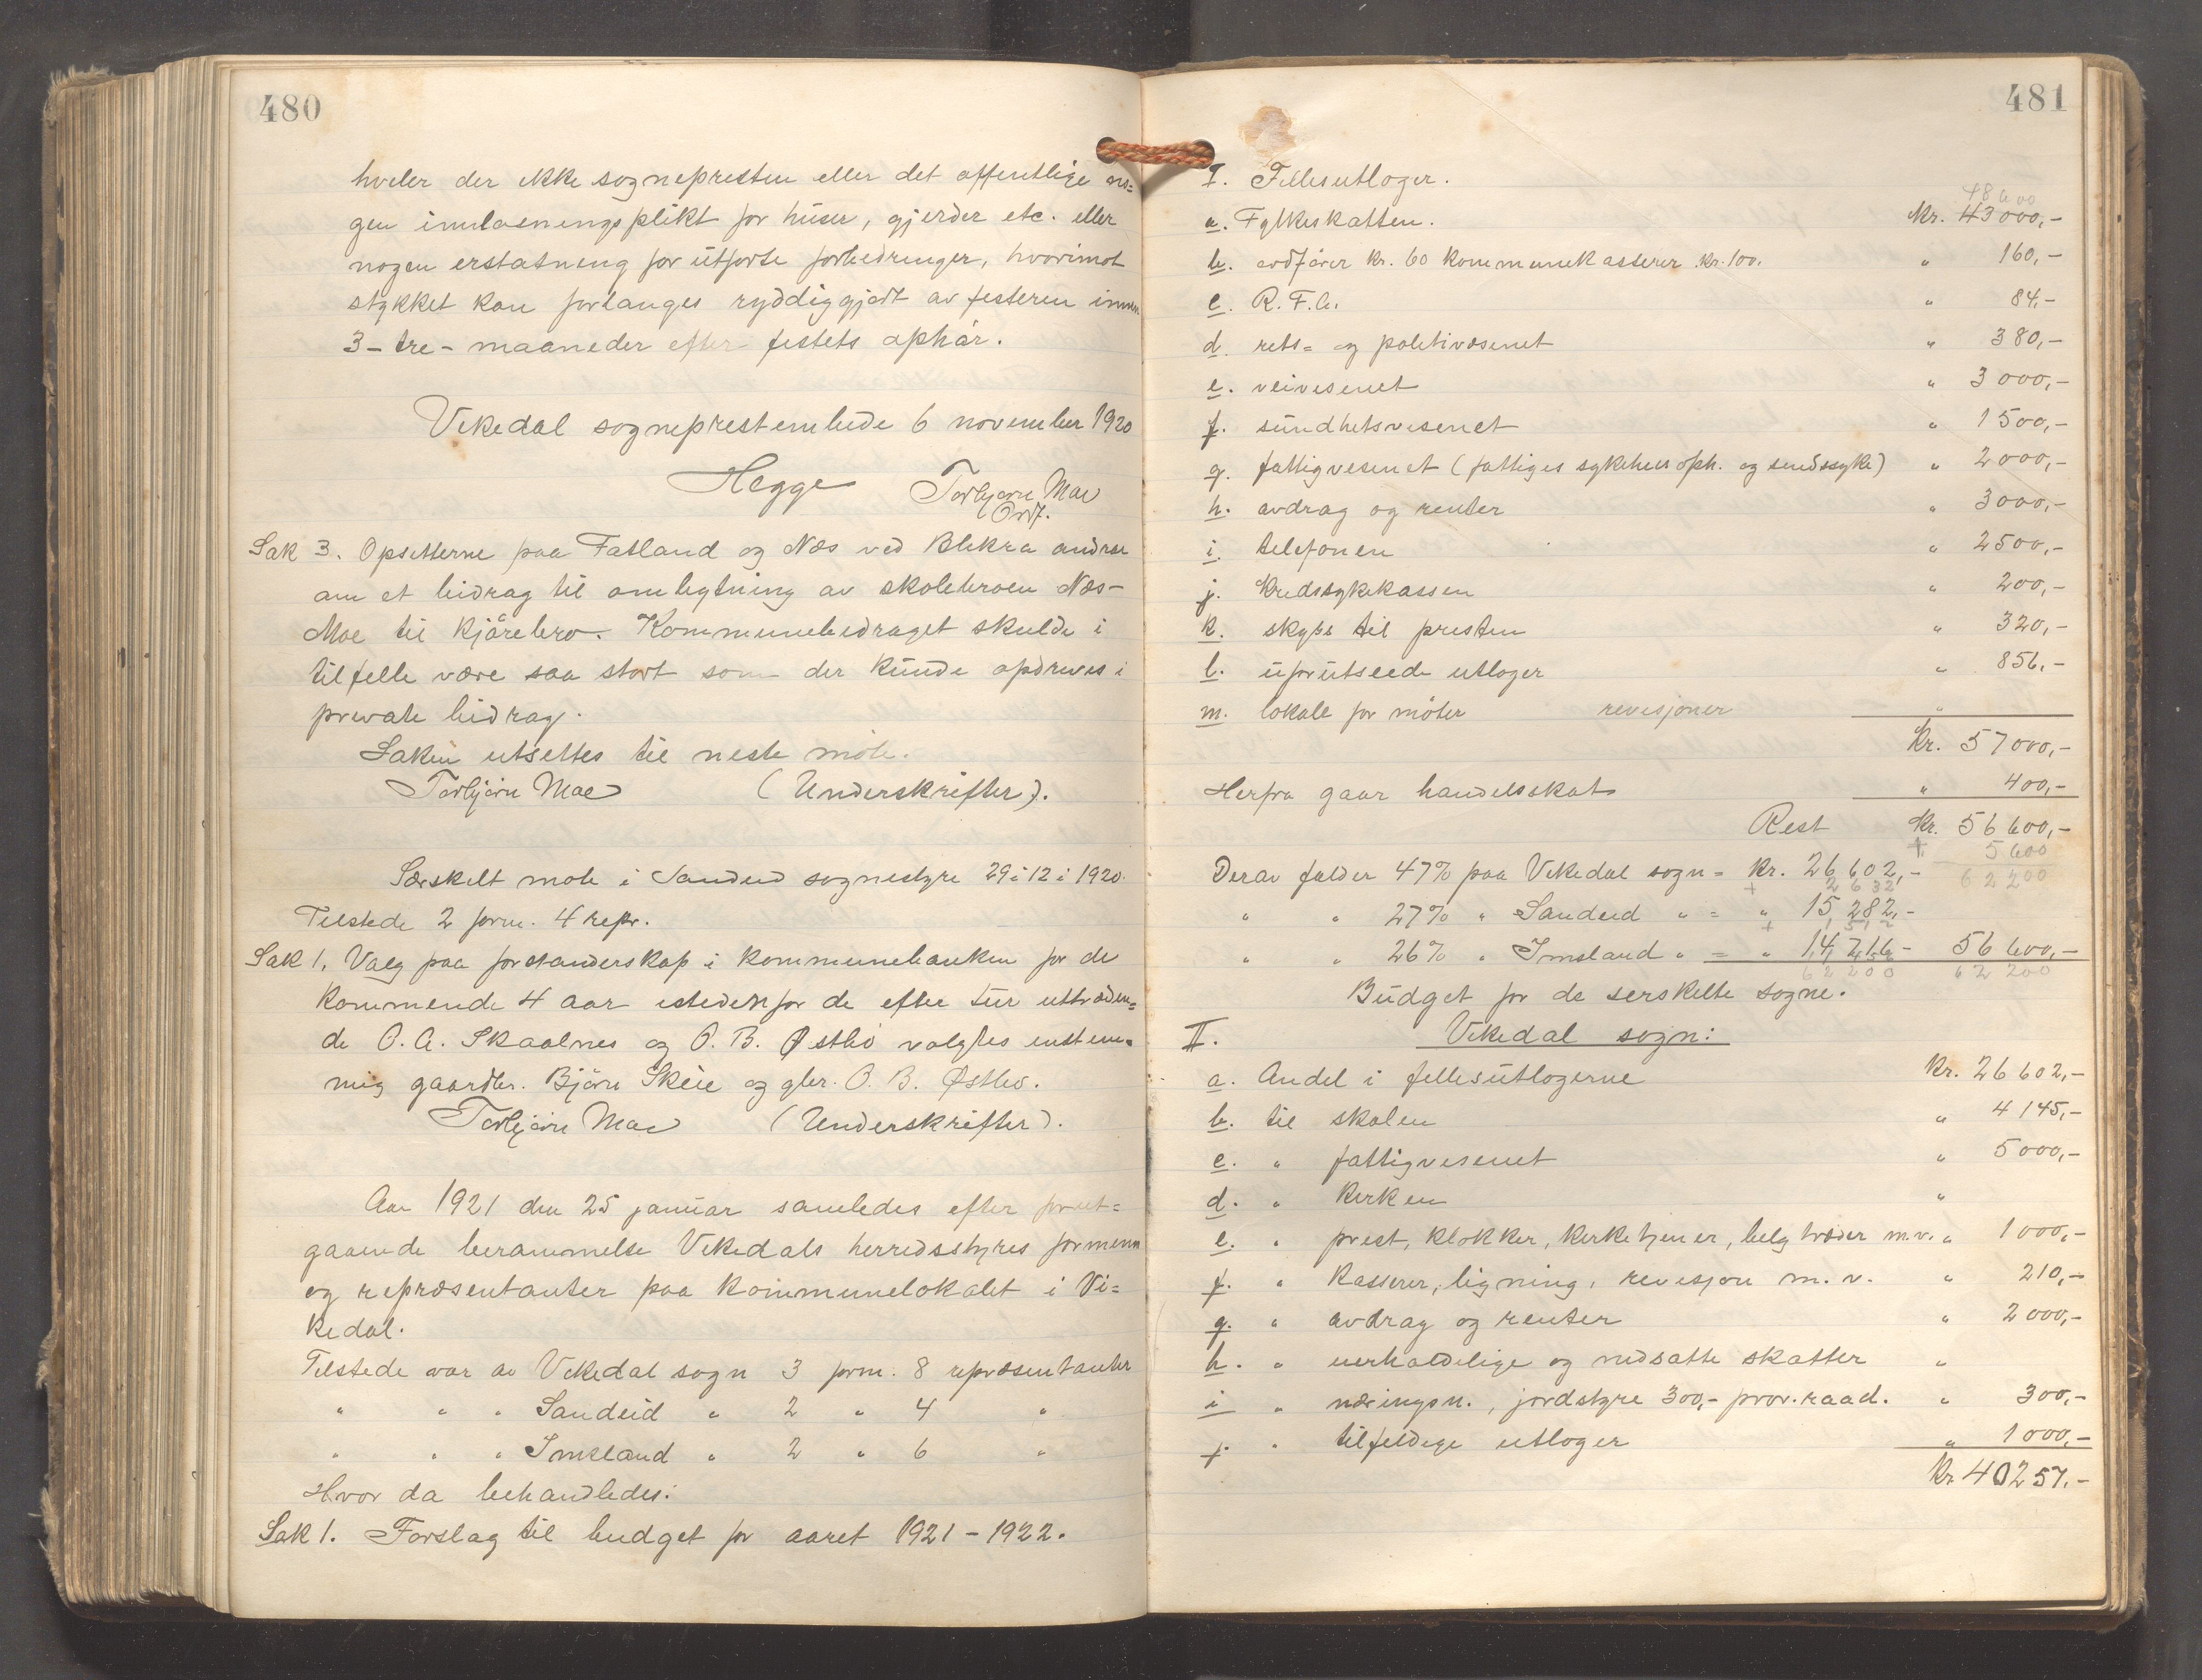 480
hviler der ikke sognepresten eller det offentlige no=
gen innløsningsplikt for huser, gjerder etc. eller
nogen erstatning for utførte forbedringer, hvorimot
stykket kan forlanges ryddiggjort av festeren innen
3 - tre - maaneder efter festets ophør.
Vikedal sogneprestembede 6 november 1920
Hegge Torbjørn Mæ
Ordf.
Sak 3. Opsitterne paa Fatland og Næs ved Blikra andrar
om et bidrag til omlegtning av skoleveien Næs-
Moe til kjørebro. Kommunebidraget skulde i
tilfelle være saa stort som der kunde opdrives i
private bidrag.
Saken utsettes til neste møte.
Torbjørn Mæ (Underskrifter).
Særskilt møte i Sandeid sognestyre 29 i 12 i 1920.
Tilstede 2 form. 4 repr.
Sak 1. Valg paa forstanderskap i kommunebanken for de
kommende 4 aar istedenfor de efter tur uttræden=
de O. A. Skaalnes og O. B. Østbø valgtes enstem=
mig gaardbr. Bjørn Skeie og gbr. O. B. Østbø.
Torbjørn Mæ (Underskrifter).
Aar 1921 den 25 januar samledes efter forut=
gaaende berammelse Vikedals herredsstyres formenn
og representanter paa kommunelokalet i Vi=
kedal.
Tilstede var av Vikedal sogn 3 form. 8 representanter
" " " Sandeid " 2 " 4 "
" " " Imsland " 2 " 6 "
Hvor da behandledes:
Sak 1. Forslag til budget for aaret 1921 - 1922.
481
I. Fellesutloger.
48 600
a. Fylkeskatten. Kr. 43 000,-
b. ordfører kr. 60 kommunekasserer kr. 100. " 160,-
c. R. F. A. " 84,-
d. rets= og politivæsenet " 380,-
e. veivesenet " 3 000,-
f. sundhetsvesenet " 1 500,-
g. fattigvesenet (fattiges sykehusoph. og sindssyke) " 2 000,-
h. avdrag og renter " 3 000,-
i. telefonen " 2 500,-
j. kredssykekassen " 200,-
k. skyss til presten " 320,-
l. uforutseede utloger " 856,-
m. lokale for møter revisjoner "
Kr. 57 000,-
Herfra gaar handelsskat " 400,-
Rest Kr. 56 600,-
+ 5 600
Derav falder 47% paa Vikedal sogn = Kr. 26 602,- 62 200
+ 2 632
" " 27% " Sandeid " = " 15 282,-
+ 1 512
" " 26% " Imsland " = " 14 716- 56 600,-
62 200 62 200
Budget for de serskilte sogne.
II. Vikedal sogn:
a. Andel i fellesutlogerne Kr. 26 602,-
b. til skolen " 4 145,-
c. " fattigvesenet " 5 000,-
d. " kirken "
e. " prest, klokker, kirketjener, belgtræder m.v. " 1 000,-
f. " Kasserer, ligning, revisjon m. v. " 210,-
g. " avdrag og renter " 2 000,-
h. " uerholdelige og nedsatte skatter "
i " næringsn., jordstyre 300,- prov.raad. " 300,-
j. " tilfeldige utloger " 1 000,-
Kr 40 257,-